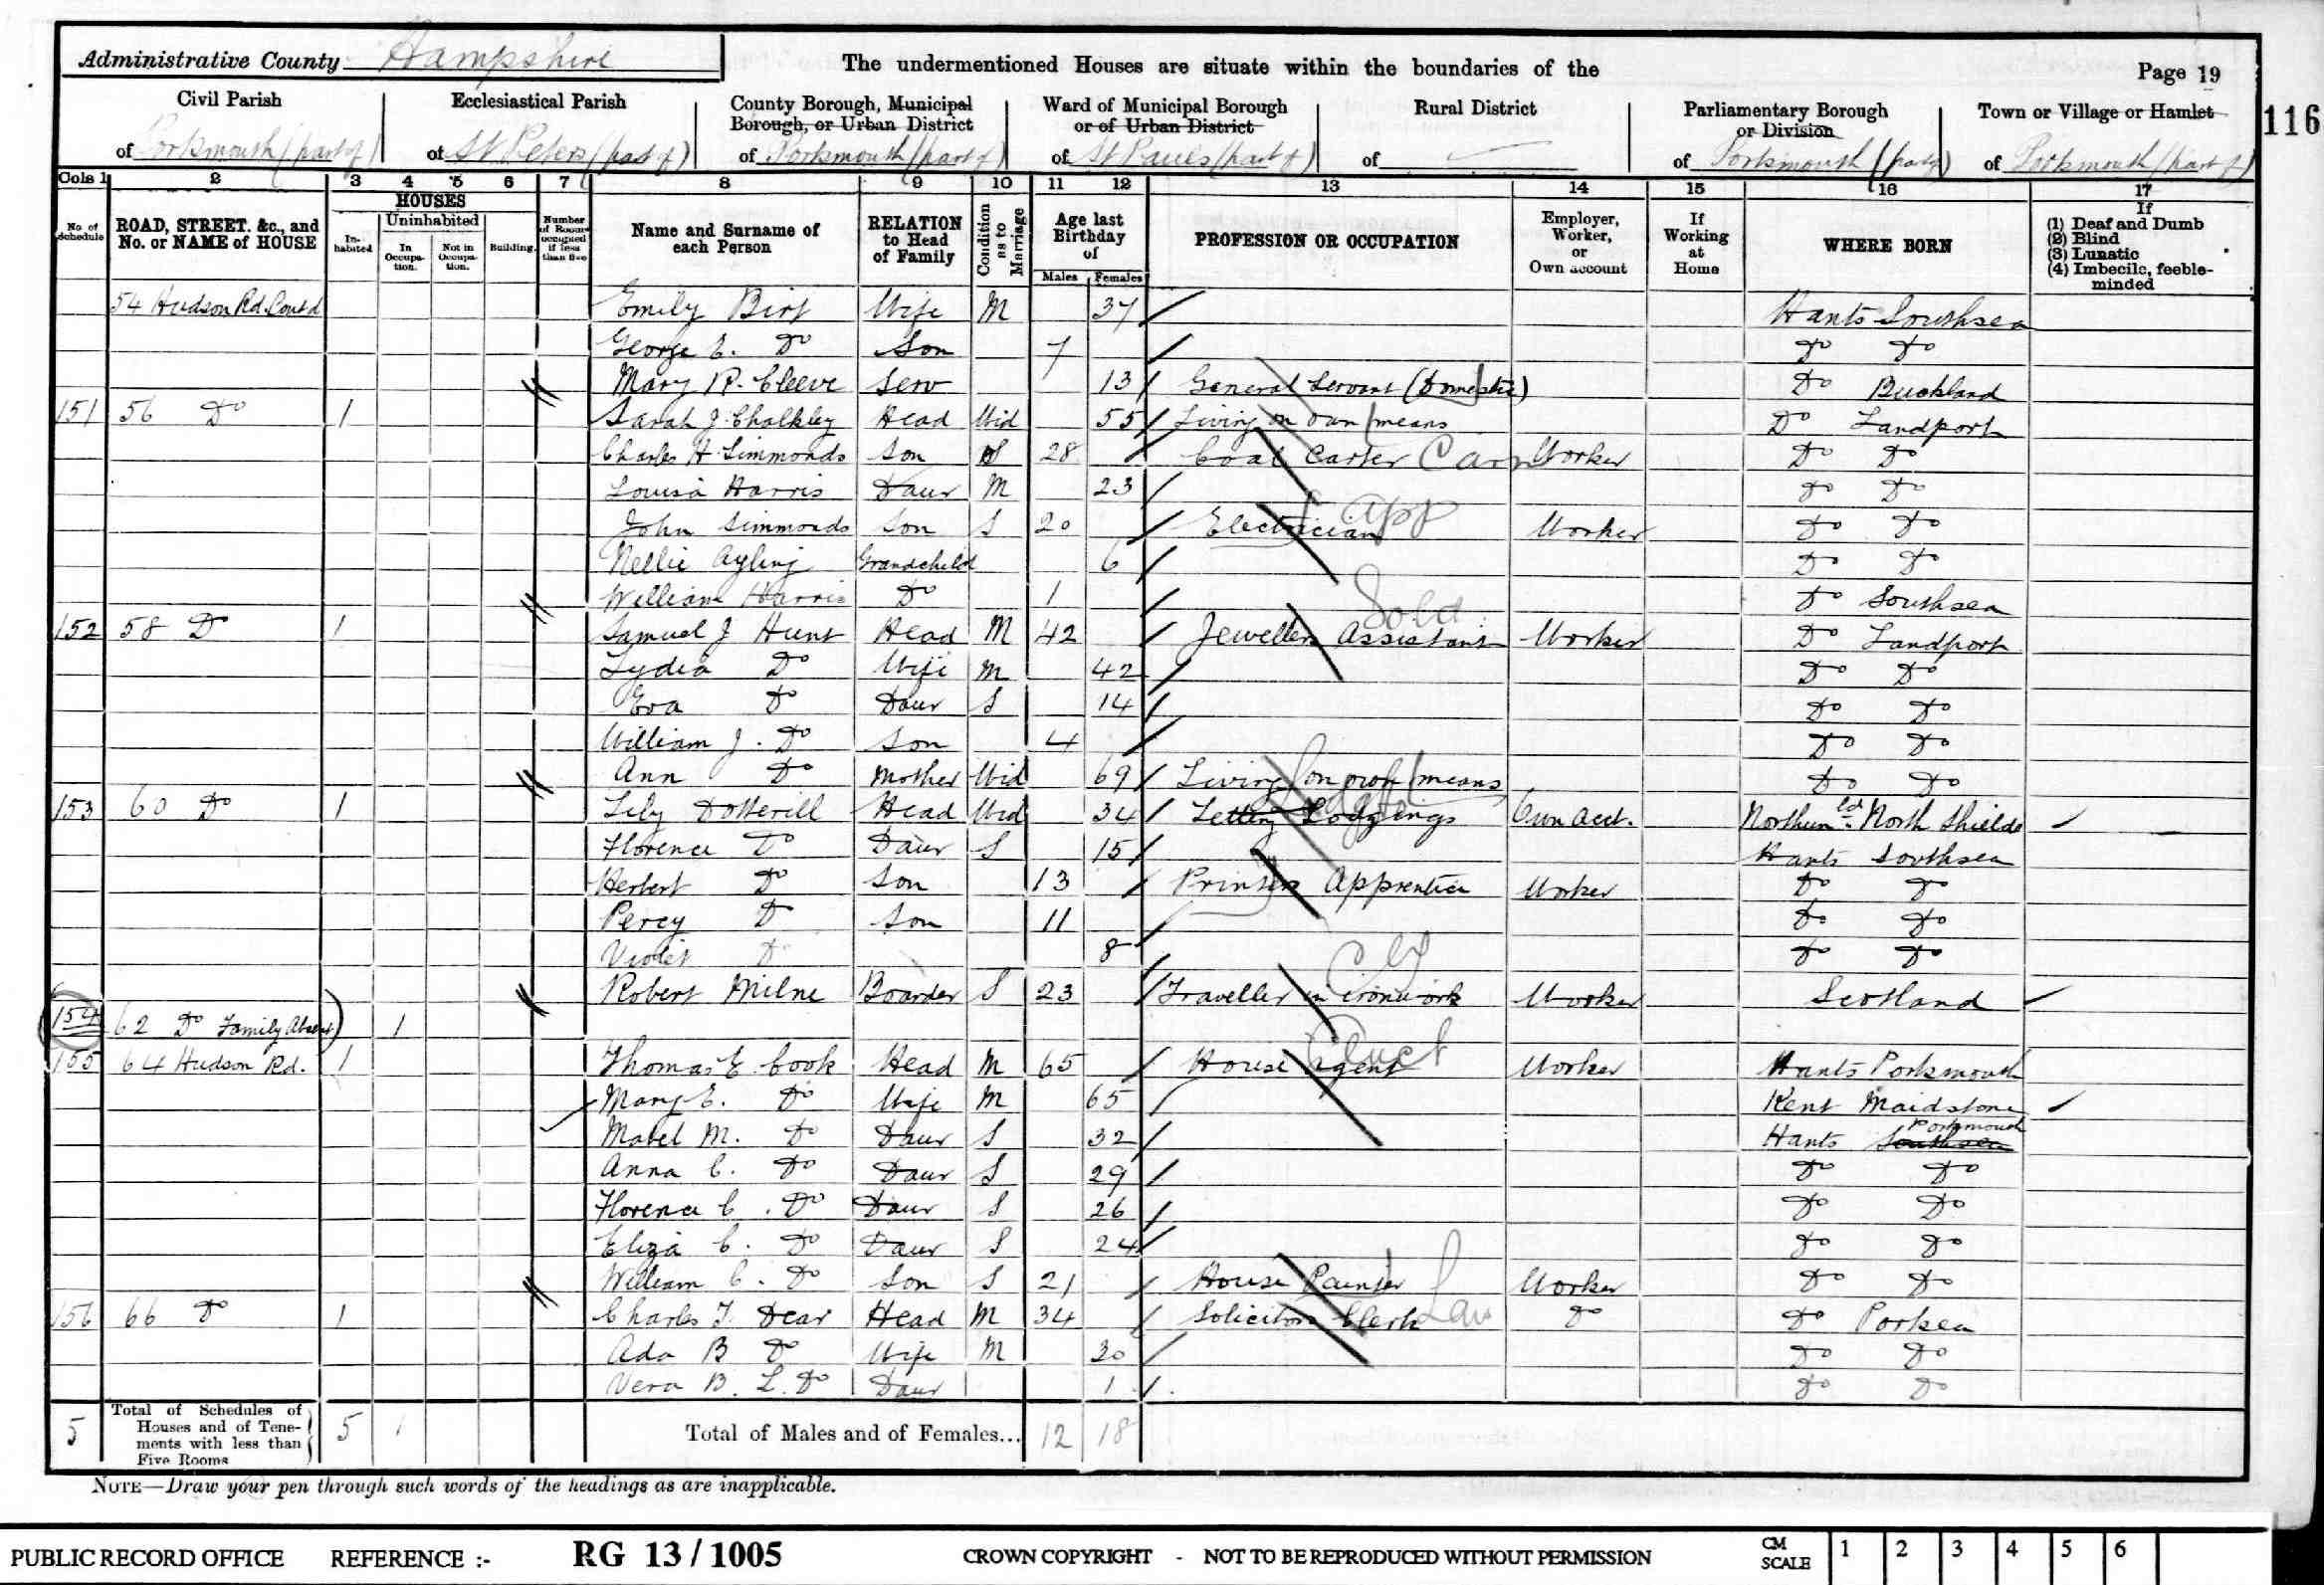 Administrative County Hampshire The undermentioned Houses are situate within the boundaries of the Page 19
116
Civil Parish Ecclesiastical Parish County Borough, Municipal Borough, or Urban District Ward of Municipal Borough or of Urban District Rural District Parliamentary Borough or Division Town or Village or Hamlet
of Portsmouth (part of) of St Peters (part of) of Portsmouth (part of) of St Pauls (part of) of of Portsmouth (part of) of Portsmouth (part of)
Cols 1 2 3 4 5 6 7 8 9 10 11 12 13 14 15 16 17
No of Schedule ROAD, STREET, &c., and No. or NAME of HOUSE HOUSES Inhabited Uninhabited In Occupation. Not in Occupation. Building. Number of Rooms occupied if less than five Name and Surname of each Person RELATION to Head of Family Condition as to Marriage Age last Birthday of Males Females PROFESSION OR OCCUPATION Employer, Worker, or Own account If Working at Home WHERE BORN If (1) Deaf and Dumb (2) Blind (3) Lunatic (4) Imbecile, feeble-minded
54 Hudson Rd. Contd Emily Birt Wife M 37 Hants Southsea
George E. Do Son 7 Do Do
Mary R. Cleeve Serv 13 General Servant (Domestic) Do Buckland
151 56 Do 1 Sarah J. Chalkley Head Wid 55 Living on own means Do Landport
Charles H Simmonds Son S 28 Coal Carter Worker Do Do
Louisa Harris Daur M 23 Do Do
John Simmonds Son S 20 Electrician app Worker Do Do
Nellie Ayling Grandchild 6 Do Do
William Harris Do 1 Do Southsea
152 58 Do 1 Samuel J Hunt Head M 42 Jewellers Assistant Worker Do Landport
Lydia Do Wife M 42 Do Do
Eva Do Daur S 14 Do Do
William J. Do Son 4 Do Do
Ann Do Mother Wid 69 Living on own means Do Do
153 60 Do 1 Lily Dotterill Head Wid 34 Letting Lodgings Own Acct. Northumld North Shields
Florence Do Daur S 15 Hants Southsea
Herbert Do Son 13 Printers Apprentice Worker Do Do
Percy Do Son 11 Do Do
Violet Do 8 Do Do
Robert Milne Boarder S 23 Traveller in ironwork Worker Scotland
154 62 Do Family Absent 1
155 64 Hudson Rd. 1 Thomas E. Cook Head M 65 House Agent Worker Hants Portsmouth
Mary E. Do Wife M 65 Kent Maidstone
Mabel M. Do Daur S 32 Hants Southsea Portsmouth
Anna C. Do Daur S 29 Do Do
Florence C. Do Daur S 26 Do Do
Eliza C. Do Daur S 24 Do Do
William C. Do Son S 21 House Painter Worker Do Do
156 66 Do 1 Charles T. Dear Head M 34 Solicitors Clerk Law Do Do Portsea
Ada B Do Wife M 30 Do Do
Vera B. L. Do Daur 1 Do Do
5 Total of Schedules of Houses and of Tenements with less than Five Rooms 5 1 Total of Males and of Females... 12 18
NOTE—Draw your pen through such words of the headings as are inapplicable.
PUBLIC RECORD OFFICE REFERENCE :- RG 13 / 1005 CROWN COPYRIGHT - NOT TO BE REPRODUCED WITHOUT PERMISSION CM SCALE 1 2 3 4 5 6